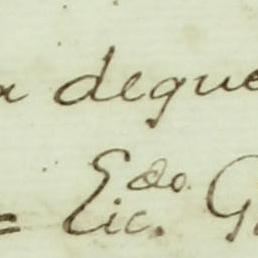 a deque
= Lic.do G